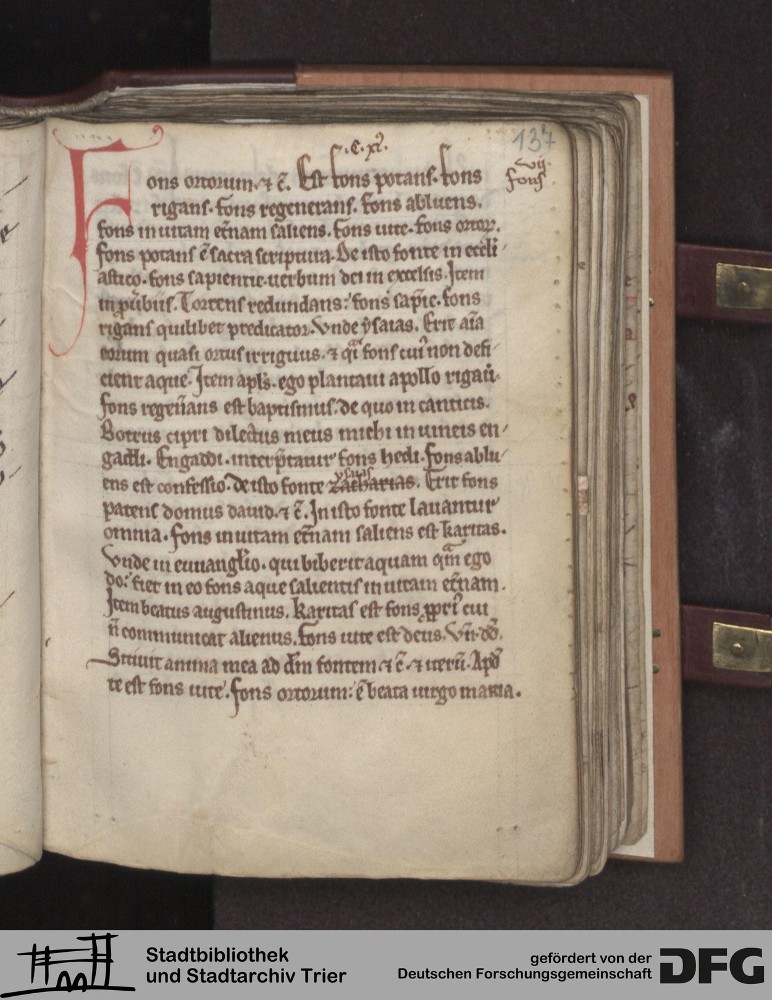 .C.xi.
137
vij.
fons
Fons ortorum. ⁊ c̄. Est fons potans. fons
rigans. fons regenerans. fons abluens.
fons in uitam et̄nam saliens. fons uite. fons ortoꝝ.
fons potans ē sacra scriptura. De isto fonte in eccl̄i
astico. fons sapientie. uerbum dei in excelsis. Item
in ꝓubiis. Torrens redundans: fons sap̄ie. fons
rigans quilibet predicator. Vnde ysaias. Erit aīa
eorum quasi ortus irriguus. ⁊ q̄i fons cuiꝰ non defi
cient aque. Item apl̄s. ego plantaui apollo rigauit̄.
fons regen̄ans est baptismus. de quo in canticis.
Botrus cipri dilectus meus michi in uineis en
gaddi. Engaddi. interp̄tatur fons hedi. fons ablu
ens est confessio. de isto fonte ysaias zacharias. Erit fons
patens domus dauid. ⁊ c̄. In isto fonte lauantur
omnia. fons in uitam et̄nam saliens est karitas.
Vnde in euuanglīo. qui biberit aquam q̄m ego
do: fiet in eo fons aque salientis in uitam et̄nam.
Item beatus augustinus. karitas est fons ꝓpriꝰ cui
n̄ communicat alienus. fons uite est deus. Vn̄
Sitiuit anima mea ad dm̄ fontem ⁊ c̄. ⁊ iterū. Apd̄
te est fons uite. fons ortorum: ē beata uirgo maria.
Stadtbibliothek
und Stadtarchiv Trier
gefördert von der
Deutschen Forschungsgemeinschaft
DFG